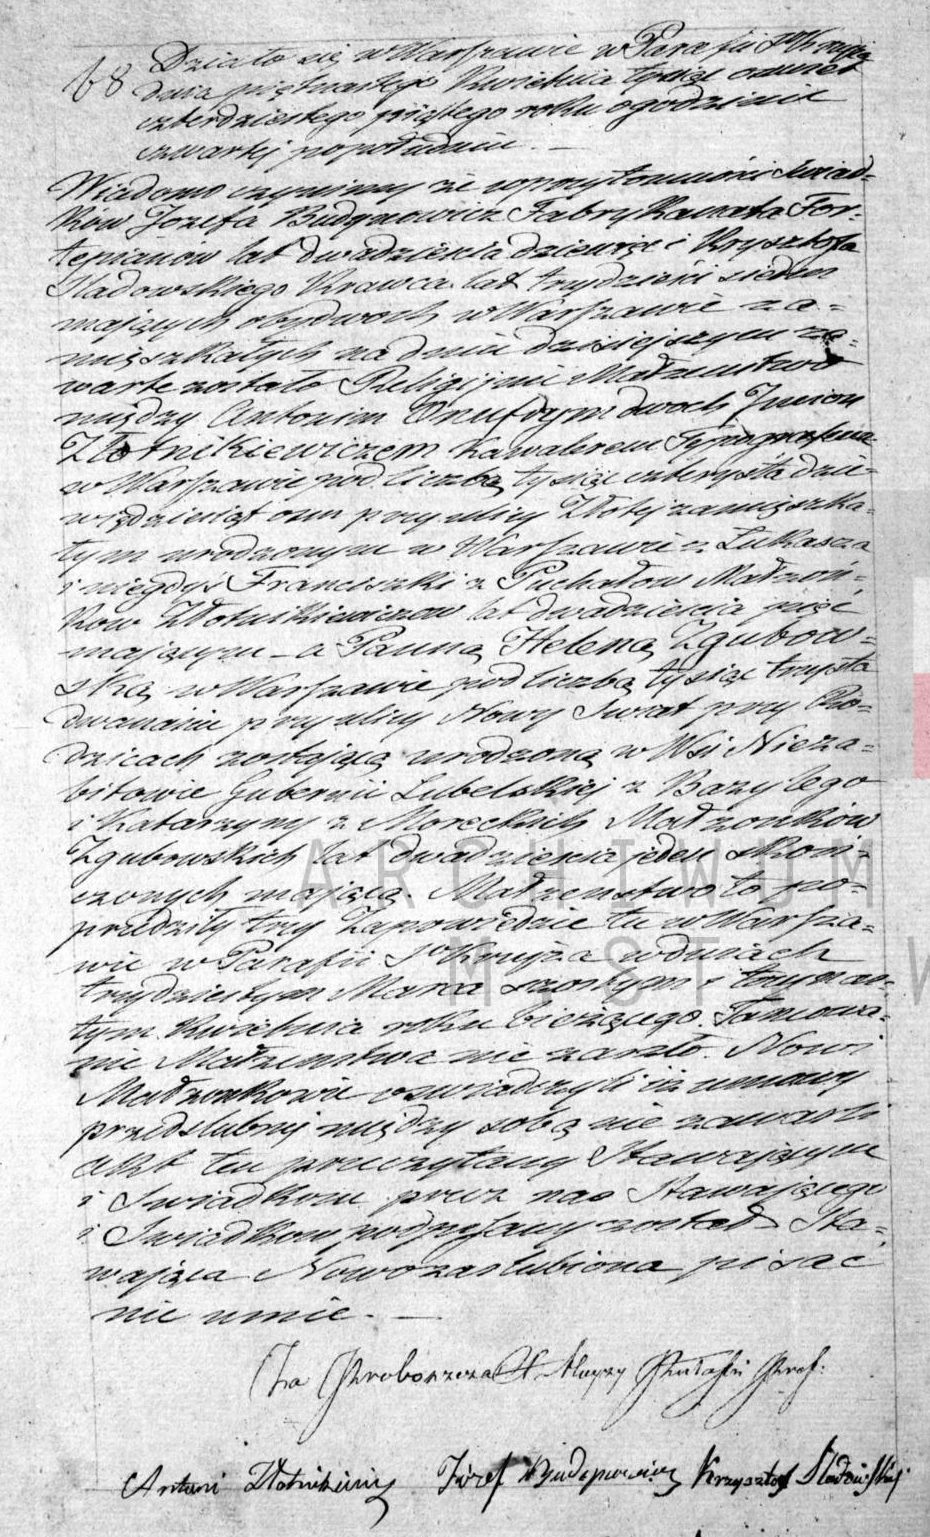 68 Działo się w Warszawie w Parafii Sgo Krzyża
dnia piętnastego Kwietnia tysiąc osmset
czterdziestego piątego roku o godzinie
czwartej popołudniu. —
Wiadomo czyniemy że w przytomności Świad=
ków Józefa Budynowicz Fabrykanta For=
tepianów lat dwadzieścia dziewięć i Krysztofa
Sladowskiego Krawca lat trzydzieści siedm
mających obydwoch w Warszawie za=
mięszkałych na dniu dzisiejszym za=
warte zostało Religijne Małżeństwo
między Antonim Onufrym dwoch Imion
Złotnikiewiczem Kawalerem Typografem
w Warszawie pod liczbą tysiąc czterysta dzie=
więdziesiąt osm przy ulicy Złotej zamięszka=
łym urodzonym w Warszawie z Łukasza
i niegdyś Franciszki z Puchałów Małżon=
ków Złotnikiewiczów lat dwadzieścia pięć
mającym — a Panną Heleną Zgubow=
ską w Warszawie pod liczbą tysiąc trzysta
dwanaście przy ulicy Nowy Świat przy Ro=
dzicach zostającą urodzoną w Wsi Nieza=
bitowie Gubernii Lubelskiej z Bazylego
i Katarzyny z Moreckich Małżonków
Zgubowskich lat dwadzieścia jeden skoń=
czonych mającą. Małżeństwo to po=
przedziły trzy Zapowiedzie tu w Warsza=
wie w Parafii Sgo Krzyża w dniach
trzydziestym Marca szóstym i trzynas=
tym Kwietnia roku bieżącego. Tamowa=
nie Małżeństwa nie zaszło. Nowi
Małżonkowie oswiadczyli iż umowy
przedslubnej między sobą nie zawarli
Akt ten przeczytany Stawającym
i Swiadkom przez nas Stawającego
i Swiadków podpisany został Sta=
wająca Nowozaslubiona pisać
nie umie. —
Za Proboszcza X Aloyzy
Antoni Złotnikiewicz Józef Budynowicz Krzysztof Sladowski
ARCHIWUM
M ST W